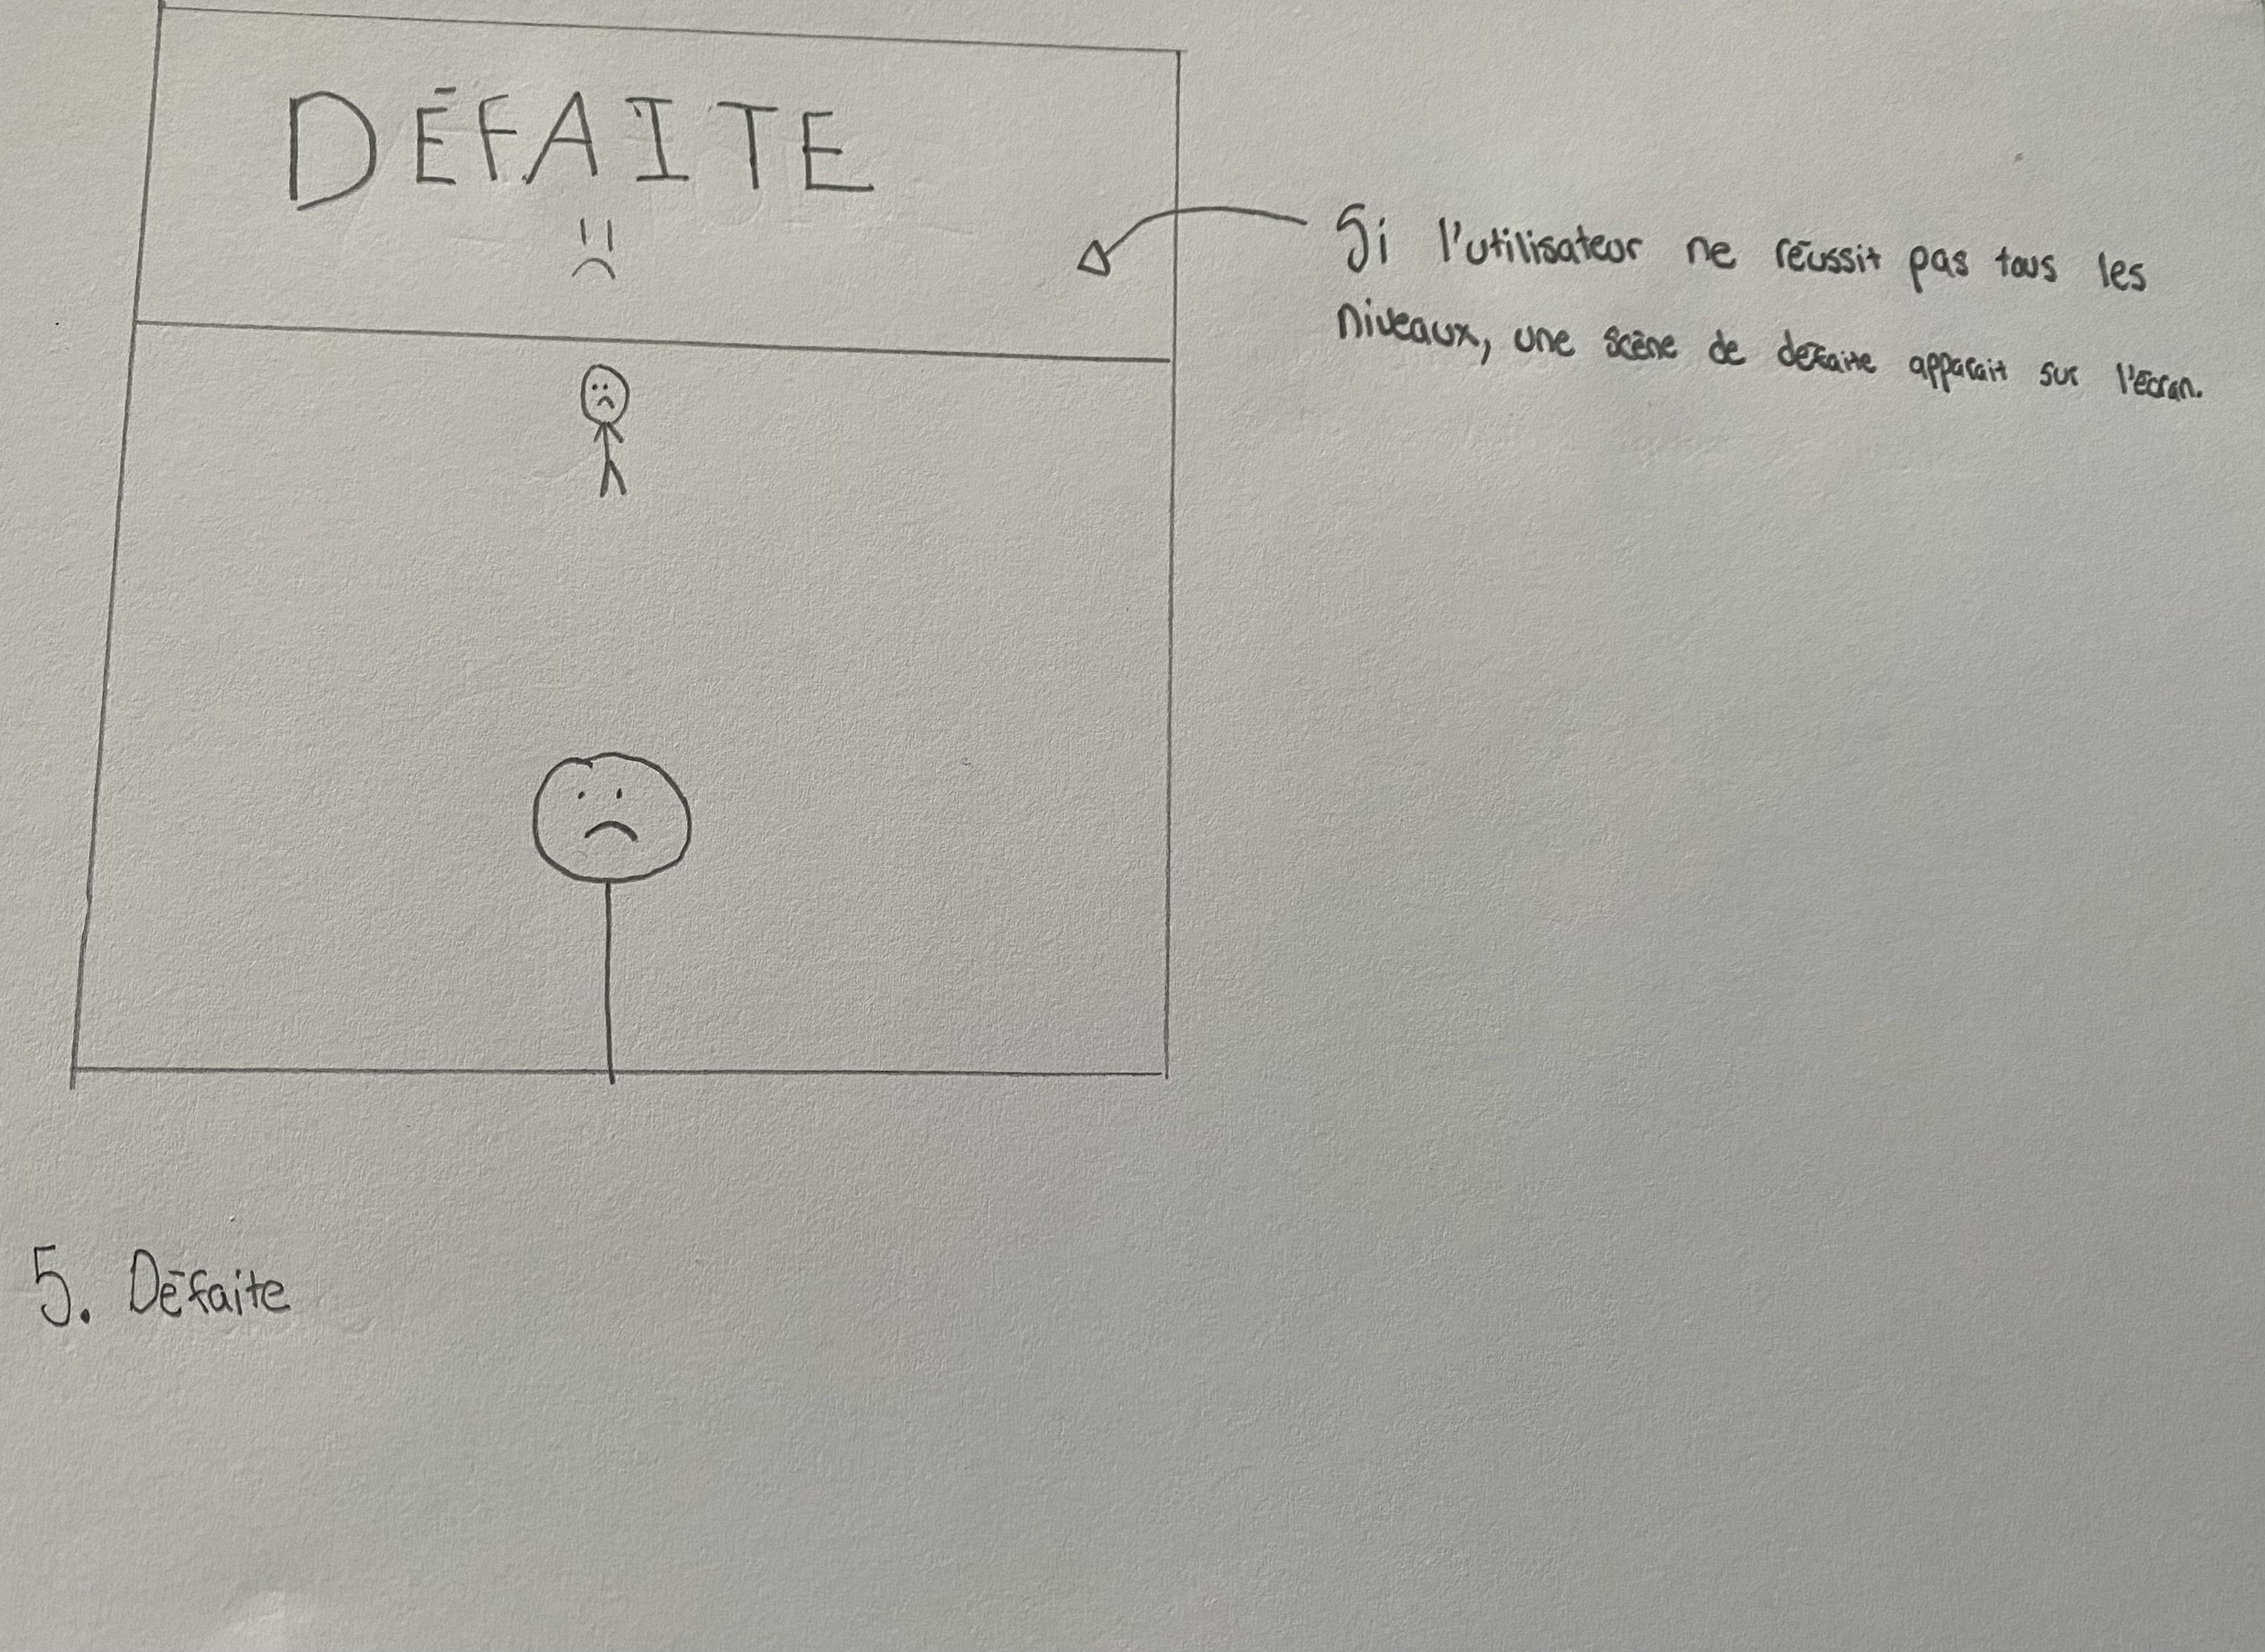 DÉFAITE
Si l'utilisateur ne réussit pas tous les
niveaux, une scène de défaite apparait sur l'écran.
5. Défaite